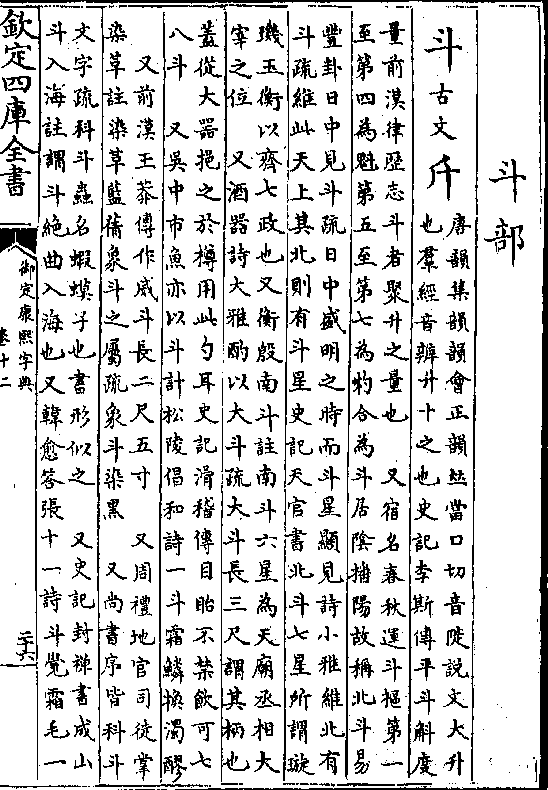 斗部
斗 古文 𣁬
唐韻集韻韻會正韻𠀤當口切音陡說文大升
也羣經音辨升十之也史記李斯傳平斗斛度
量前漢律歷志斗者聚升之量也 又宿名春秋運斗樞第一
至第四為魁第五至第七為杓合為斗居陰播陽故稱北斗易
豐卦日中見斗疏日中盛明之時而斗星顯見詩小雅維北有
斗疏維此天上其北則有斗星史記天官書北斗七星所謂璇
璣玉衡以齊七政也又衡殷南斗註南斗六星為天廟丞相大
宰之位 又酒器詩大雅酌以大斗疏大斗長三尺謂其柄也
蓋從大器挹之於樽用此勺耳史記滑稽傳目眙不禁飲可七
八斗 又吳中市魚亦以斗計松陵倡和詩一斗霜鱗換濁醪
又前漢王莽傳作威斗長二尺五寸 又周禮地官司徒掌
染草註染草藍蒨象斗之屬疏象斗染黑 又尚書序皆科斗
文字疏科斗蟲名蝦蟆子也書形似之 又史記封禪書成山
斗入海註謂斗絕曲入海也又韓愈答張十一詩斗覺霜毛一
欽定四庫全書
御定康熙字典
卷十二
二十六